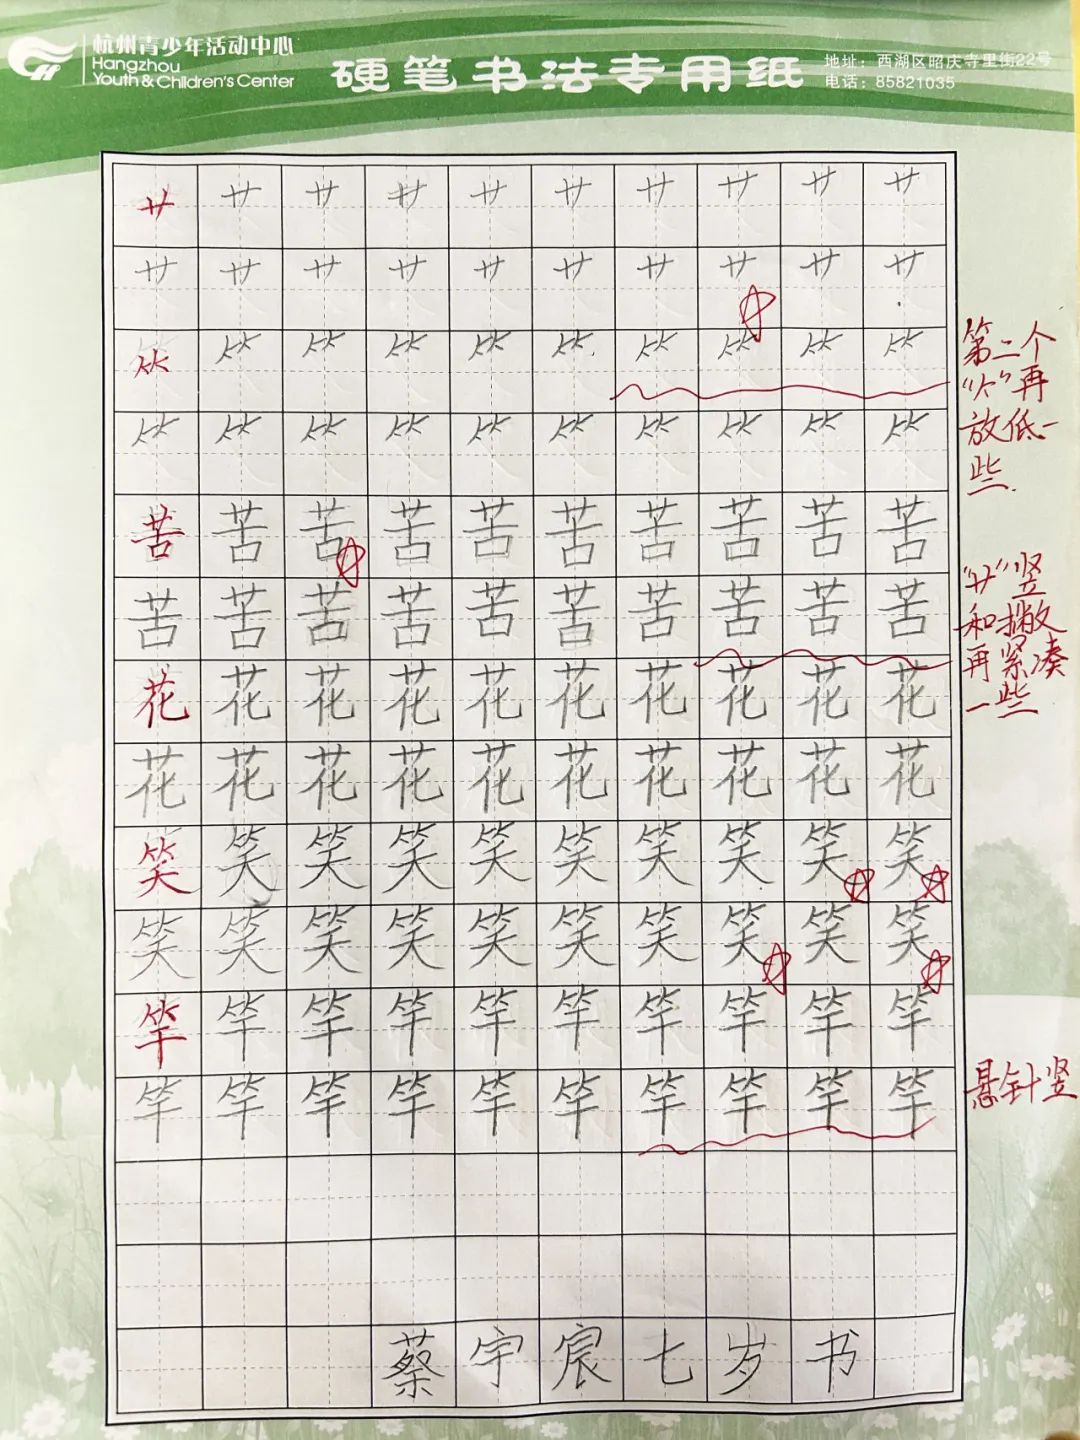 杭州青少年活动中心
Hangzhou
Youth & Children's Center
硬笔书法专用纸
地址：西湖区昭庆寺里街22号
电话：85821035
艹艹艹艹艹艹艹艹艹艹
艹艹艹艹艹艹艹艹艹艹
⺮⺮⺮⺮⺮⺮⺮⺮⺮⺮
⺮⺮⺮⺮⺮⺮⺮⺮⺮⺮
苦苦苦苦苦苦苦苦苦苦
苦苦苦苦苦苦苦苦苦苦
花花花花花花花花花花
花花花花花花花花花花
笑笑笑笑笑笑笑笑笑笑
笑笑笑笑笑笑笑笑笑笑
竿竿竿竿竿竿竿竿竿竿
竿竿竿竿竿竿竿竿竿竿
蔡宇宸七岁书
第二个
再
放低一
些.
"艹"竖
和撇
再紧凑
一些
悬针竖